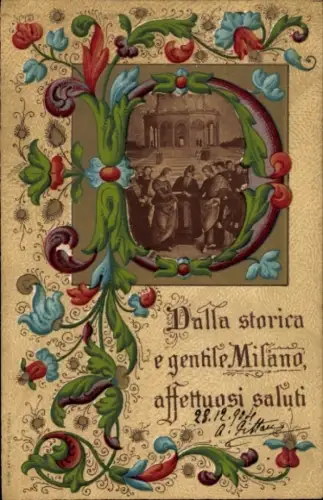 Dalla storica
e gentile Milano,
affettuosi saluti
28.12.904